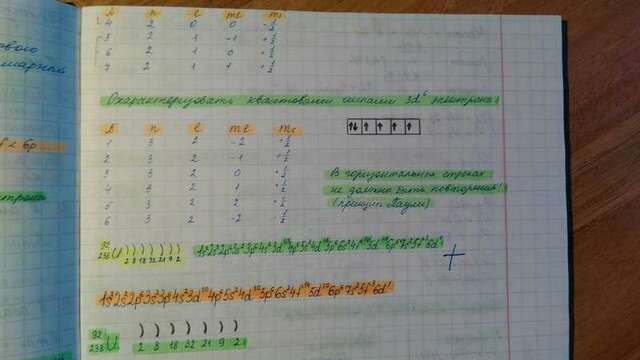 № n l ml ms
4 2 0 0 -½
5 2 1 -1 +½
6 2 1 0 +½
7 2 1 1 +½
Охарактеризовать квантовыми числами 3d⁶ электрона:
№ n l ml ms
1 3 2 -2 +½
2 3 2 -1 +½
3 3 2 0 +½
4 3 2 1 +½
5 3 2 2 +½
6 3 2 -2 -½
↑↓ ↑ ↑ ↑ ↑
В горизонтальных строках
не должно быть повторения!
(принцип Паули)
92
238 U ) ) ) ) ) ) )
2 8 18 32 21 9 2
1s²2s²2p⁶3s²3p⁶4s²3d¹⁰4p⁶5s²4d¹⁰5p⁶6s²4f¹⁴5d¹⁰6p⁶7s²5f³6d¹
92
238 U ) ) ) ) ) ) )
2 8 18 32 21 9 2